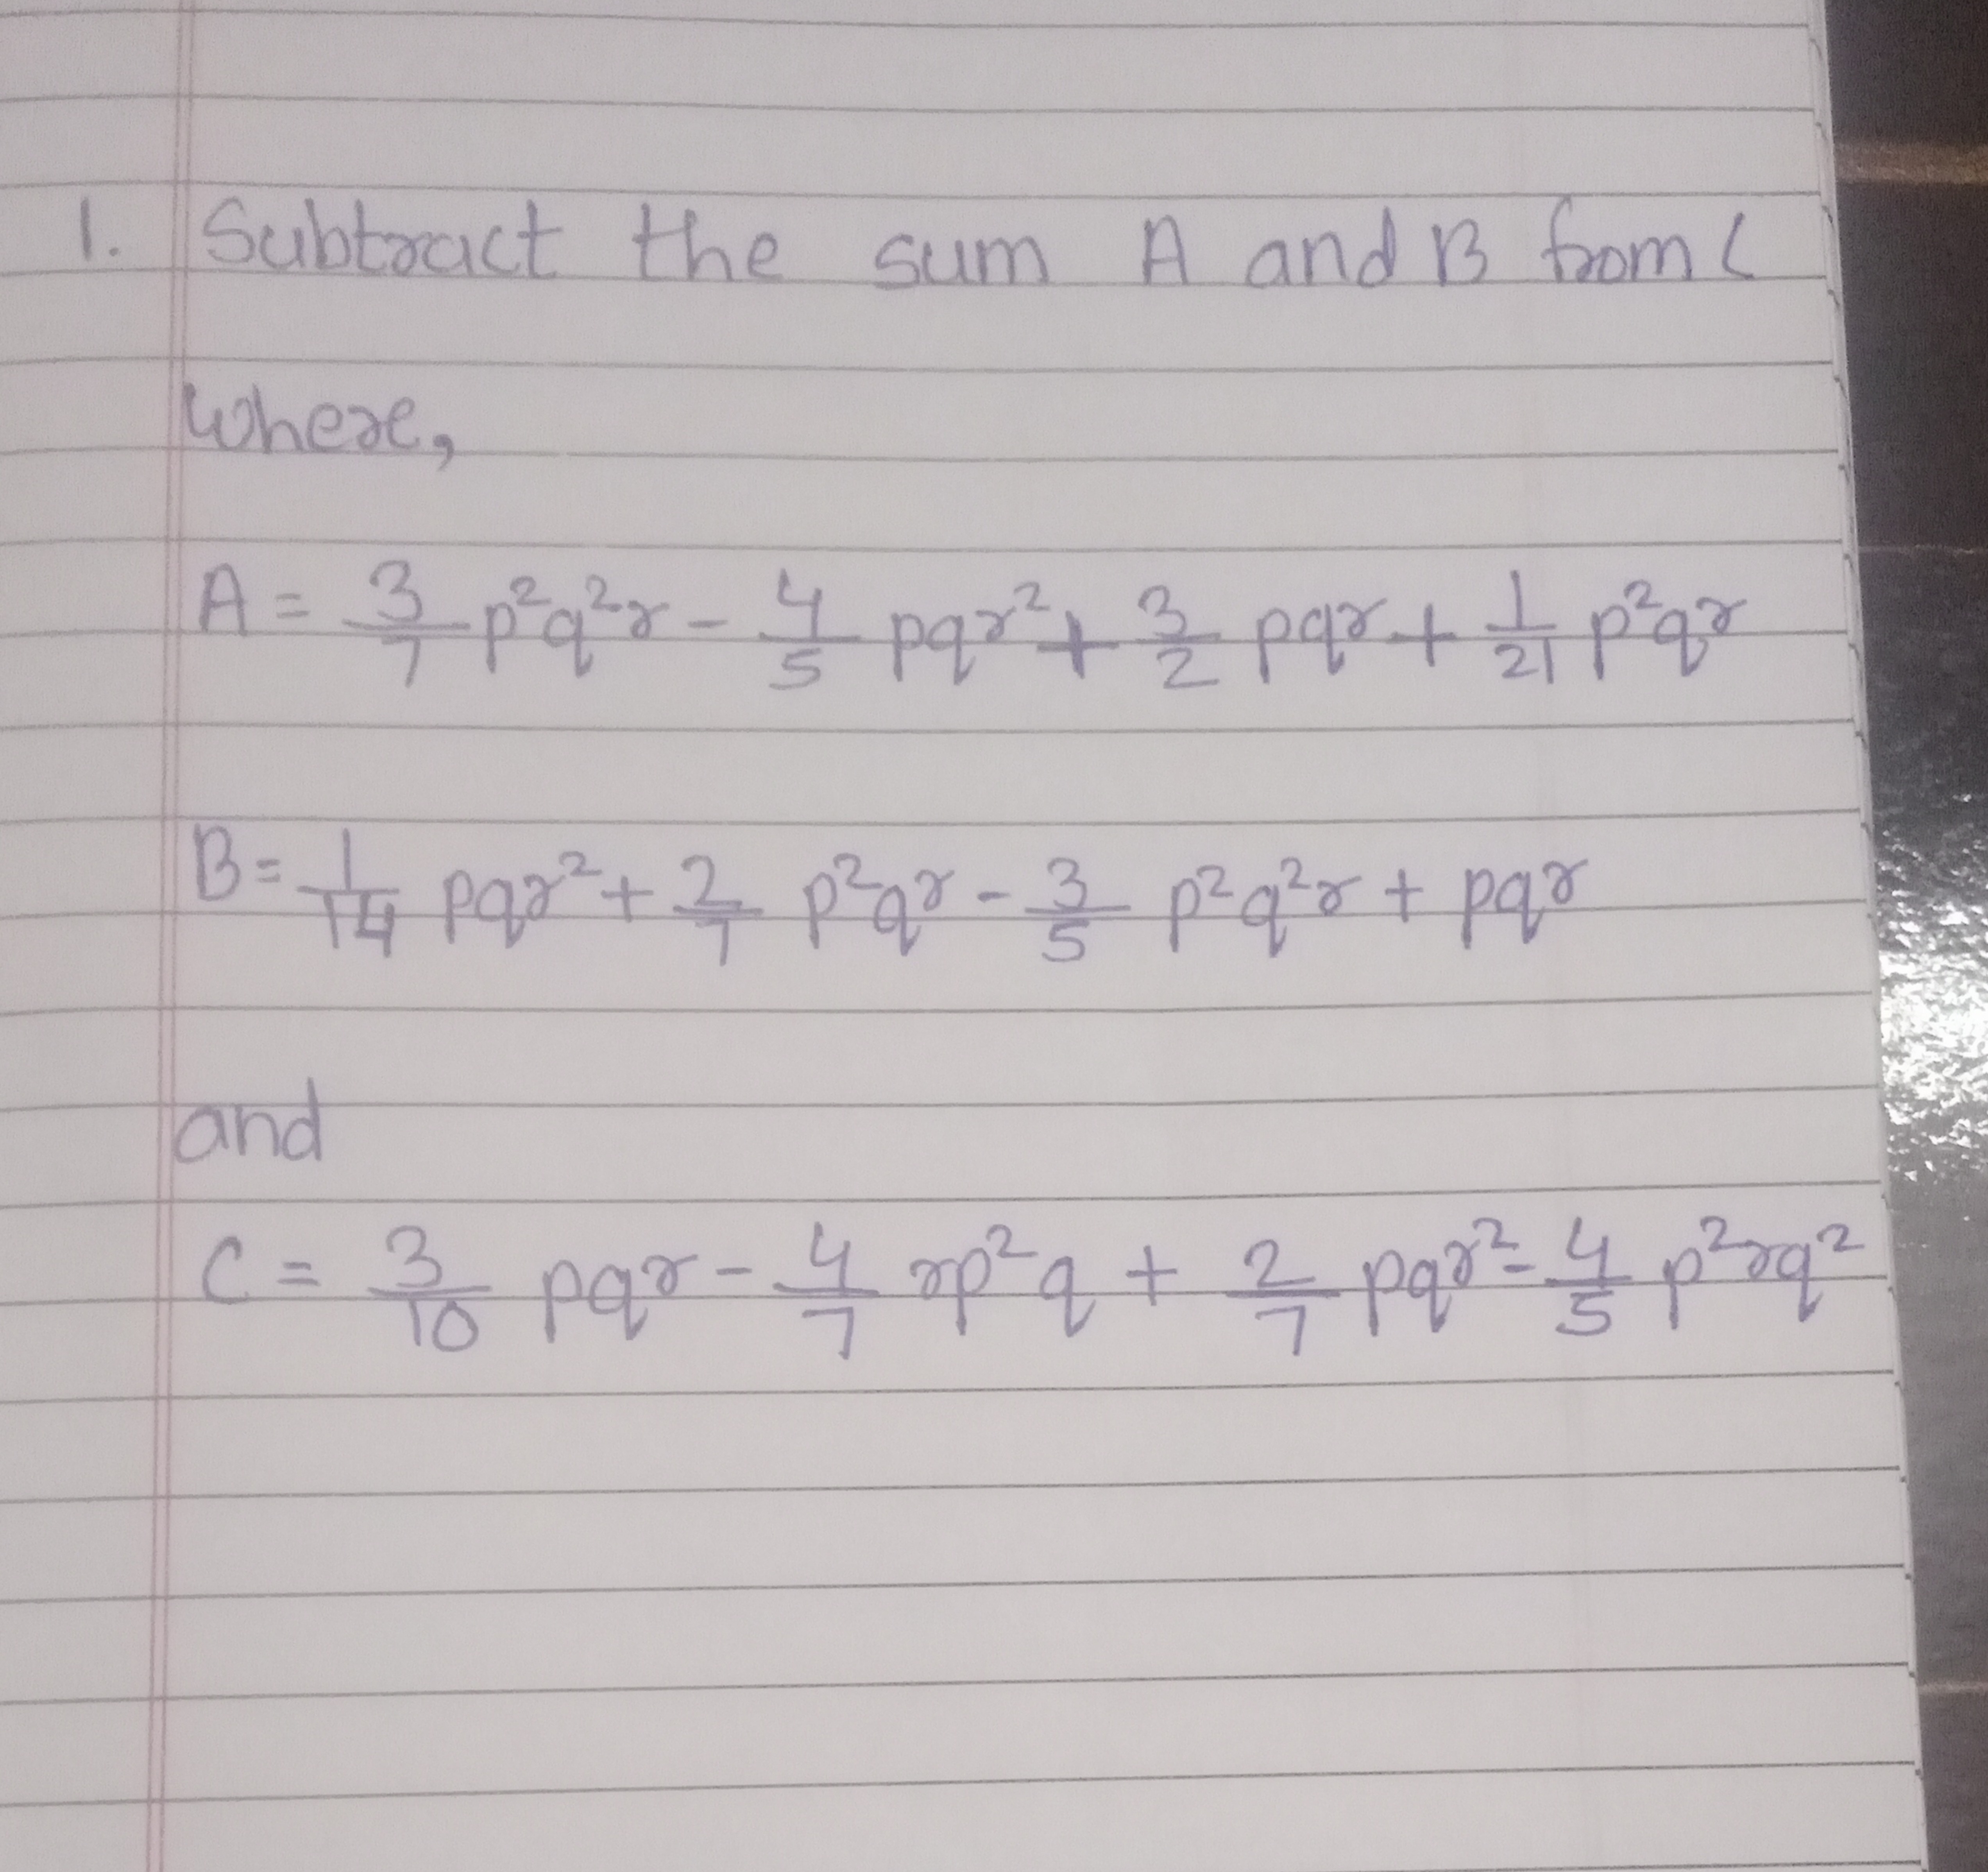 1. Subtract the sum A and B from C
where,
A = 3/7 p²q²r - 4/5 pqr² + 3/2 pqr + 1/21 p²qr
B = 1/14 pqr² + 2/7 p²qr - 3/5 p²q²r + pqr
and
C = 3/10 pqr - 4/7 rp²q + 2/7 pqr² - 4/5 p²rq²